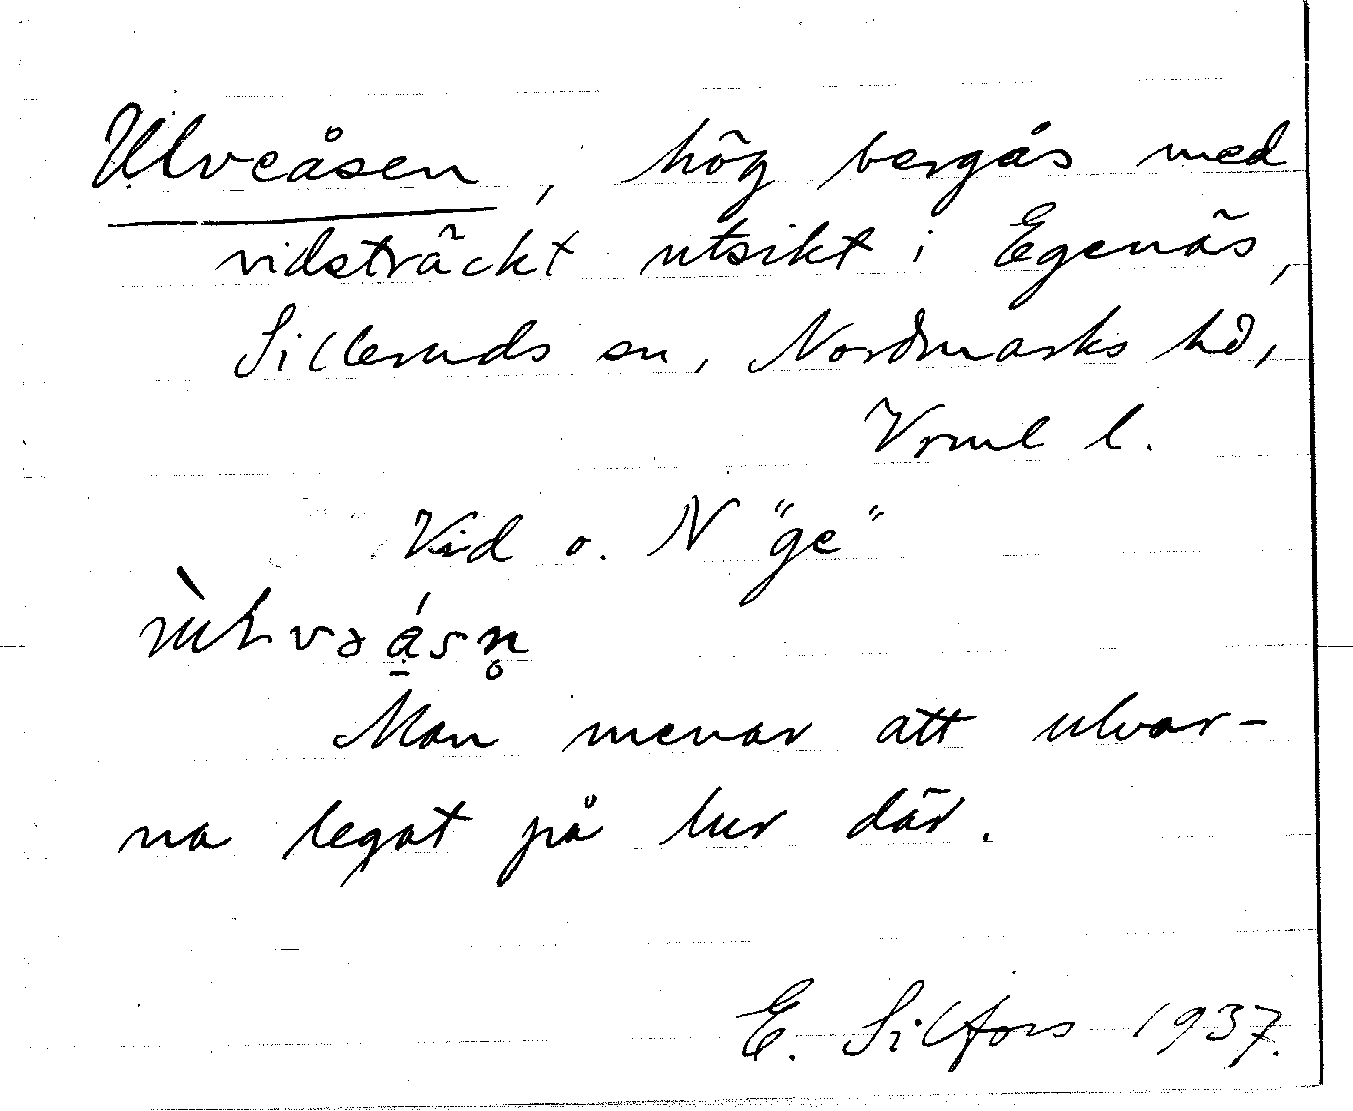 Ulveåsen, hög bergås med
vidsträckt utsikt i Egenäs,
Silleruds sn, Nordmarks hd,
Vrml l.
Vid o. N "ge"
Man menar att ulvar-
na legat på lur där.
E. Silfors 1937.